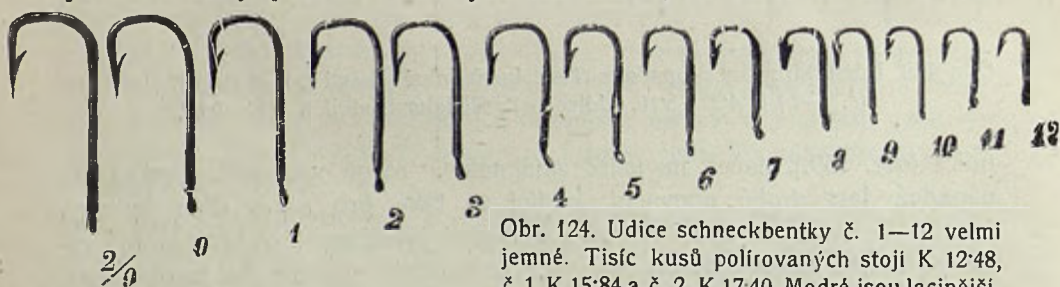 2/0 0 1 2 3 4 5 6 7 8 9 10 11 12
Obr. 124. Udice schneckbentky č. 1—12 velmi
jemné. Tisíc kusů polírovaných stojí K 12·48,
č. 1 K 15·84 a č. 2 K 17·40. Modré jsou lacinější.